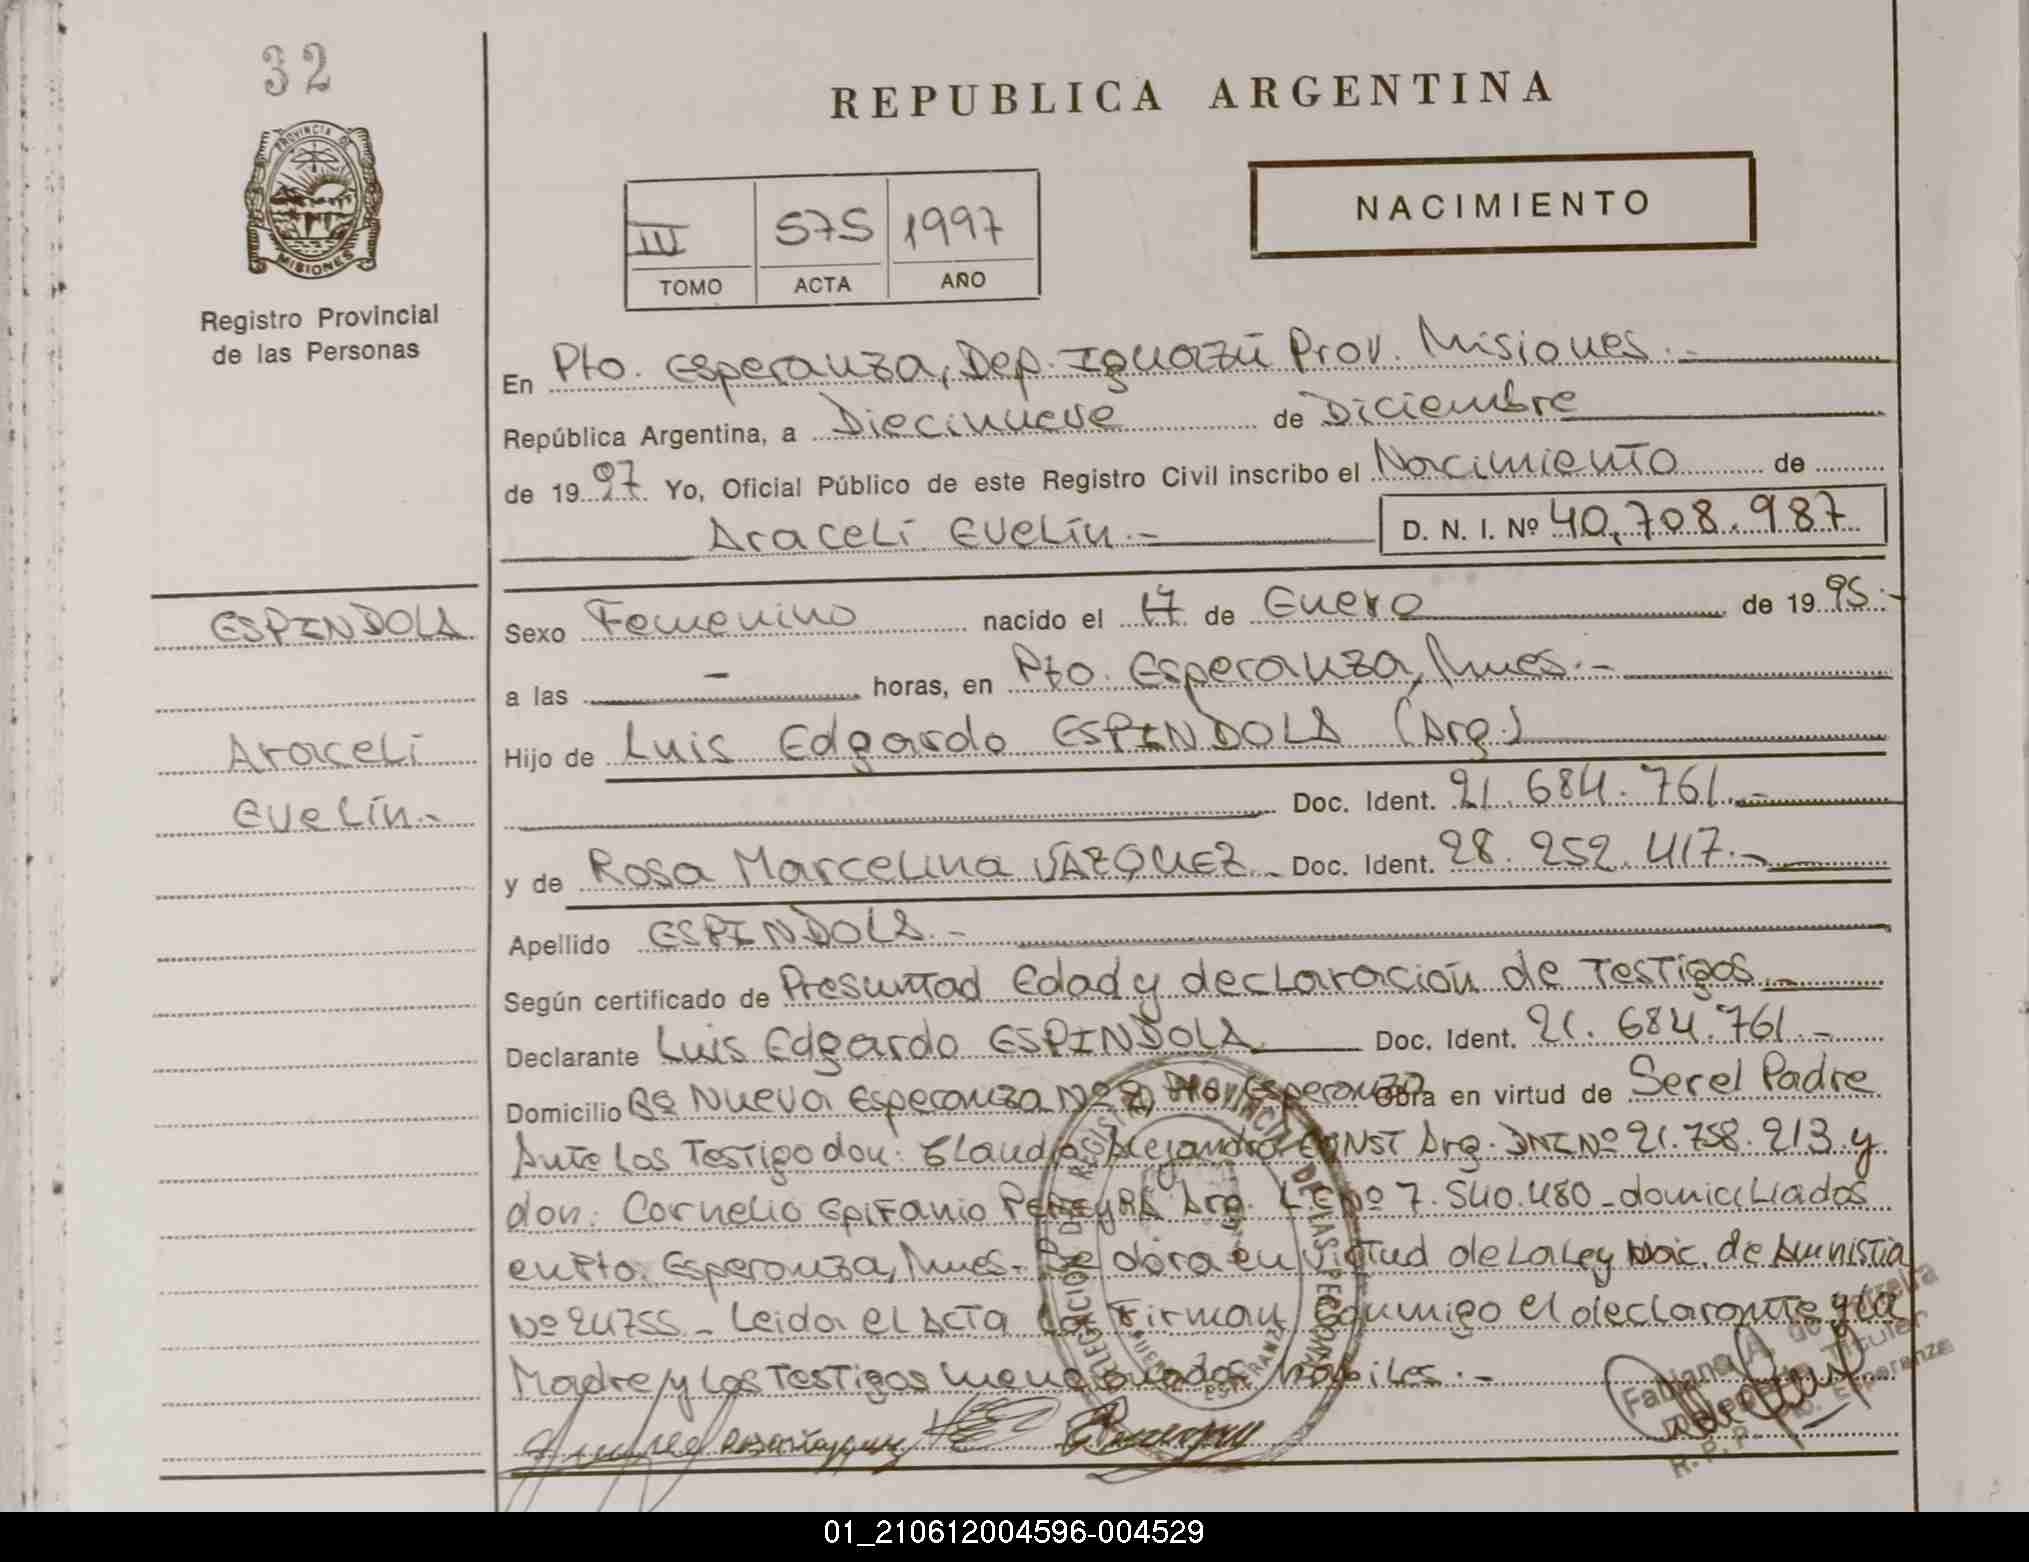 32
REPUBLICA ARGENTINA
PROVINCIA DE
MISIONES
Registro Provincial
de las Personas
III 575 1997
TOMO ACTA AÑO
NACIMIENTO
En Pto. Esperanza, Dep. Iguazú Prov. Misiones.-
República Argentina, a Diecinueve de Diciembre
de 1997 Yo, Oficial Público de este Registro Civil inscribo el Nacimiento de
Araceli Evelín.- D. N. I. Nº 40.708.987
ESPINDOLA
Araceli
Evelín.-
Sexo Femenino nacido el 17 de Enero de 1995.-
a las - horas, en Pto. Esperanza, Mnes.-
Hijo de Luis Edgardo ESPINDOLA (Arg.)
Doc. Ident. 21.684.761.-
y de Rosa Marcelina VAZQUEZ Doc. Ident. 28.252.417.-
Apellido ESPINDOLA.-
Según certificado de Presuntad Edad y declaración de Testigos.
Declarante Luis Edgardo ESPINDOLA Doc. Ident. 21.684.761.-
Domicilio Bº Nueva Esperanza Nº 2, Pto. Esperanza Obra en virtud de Ser el Padre
Ante los Testigo don: Claudio Alejandro Arg. DNI Nº 21.758.213 y
don: Cornelio Epifanio PEREYRA Arg. L.E. Nº 7.540.480 - domiciliados
en Pto. Esperanza, Mnes.- Se obra en virtud de la Ley Nac. de Amnistia
Nº 24755 - Leida el Acta la Firman Conmigo el declarante y la
Madre y los Testigos mencionados habiles.-
DELEGACION DE REGISTRO PROVINCIAL DE LAS PERSONAS
ESPERANZA
Fabiana A. de
Titular
R. P. P. Pto. Esperanza
01_210612004596-004529